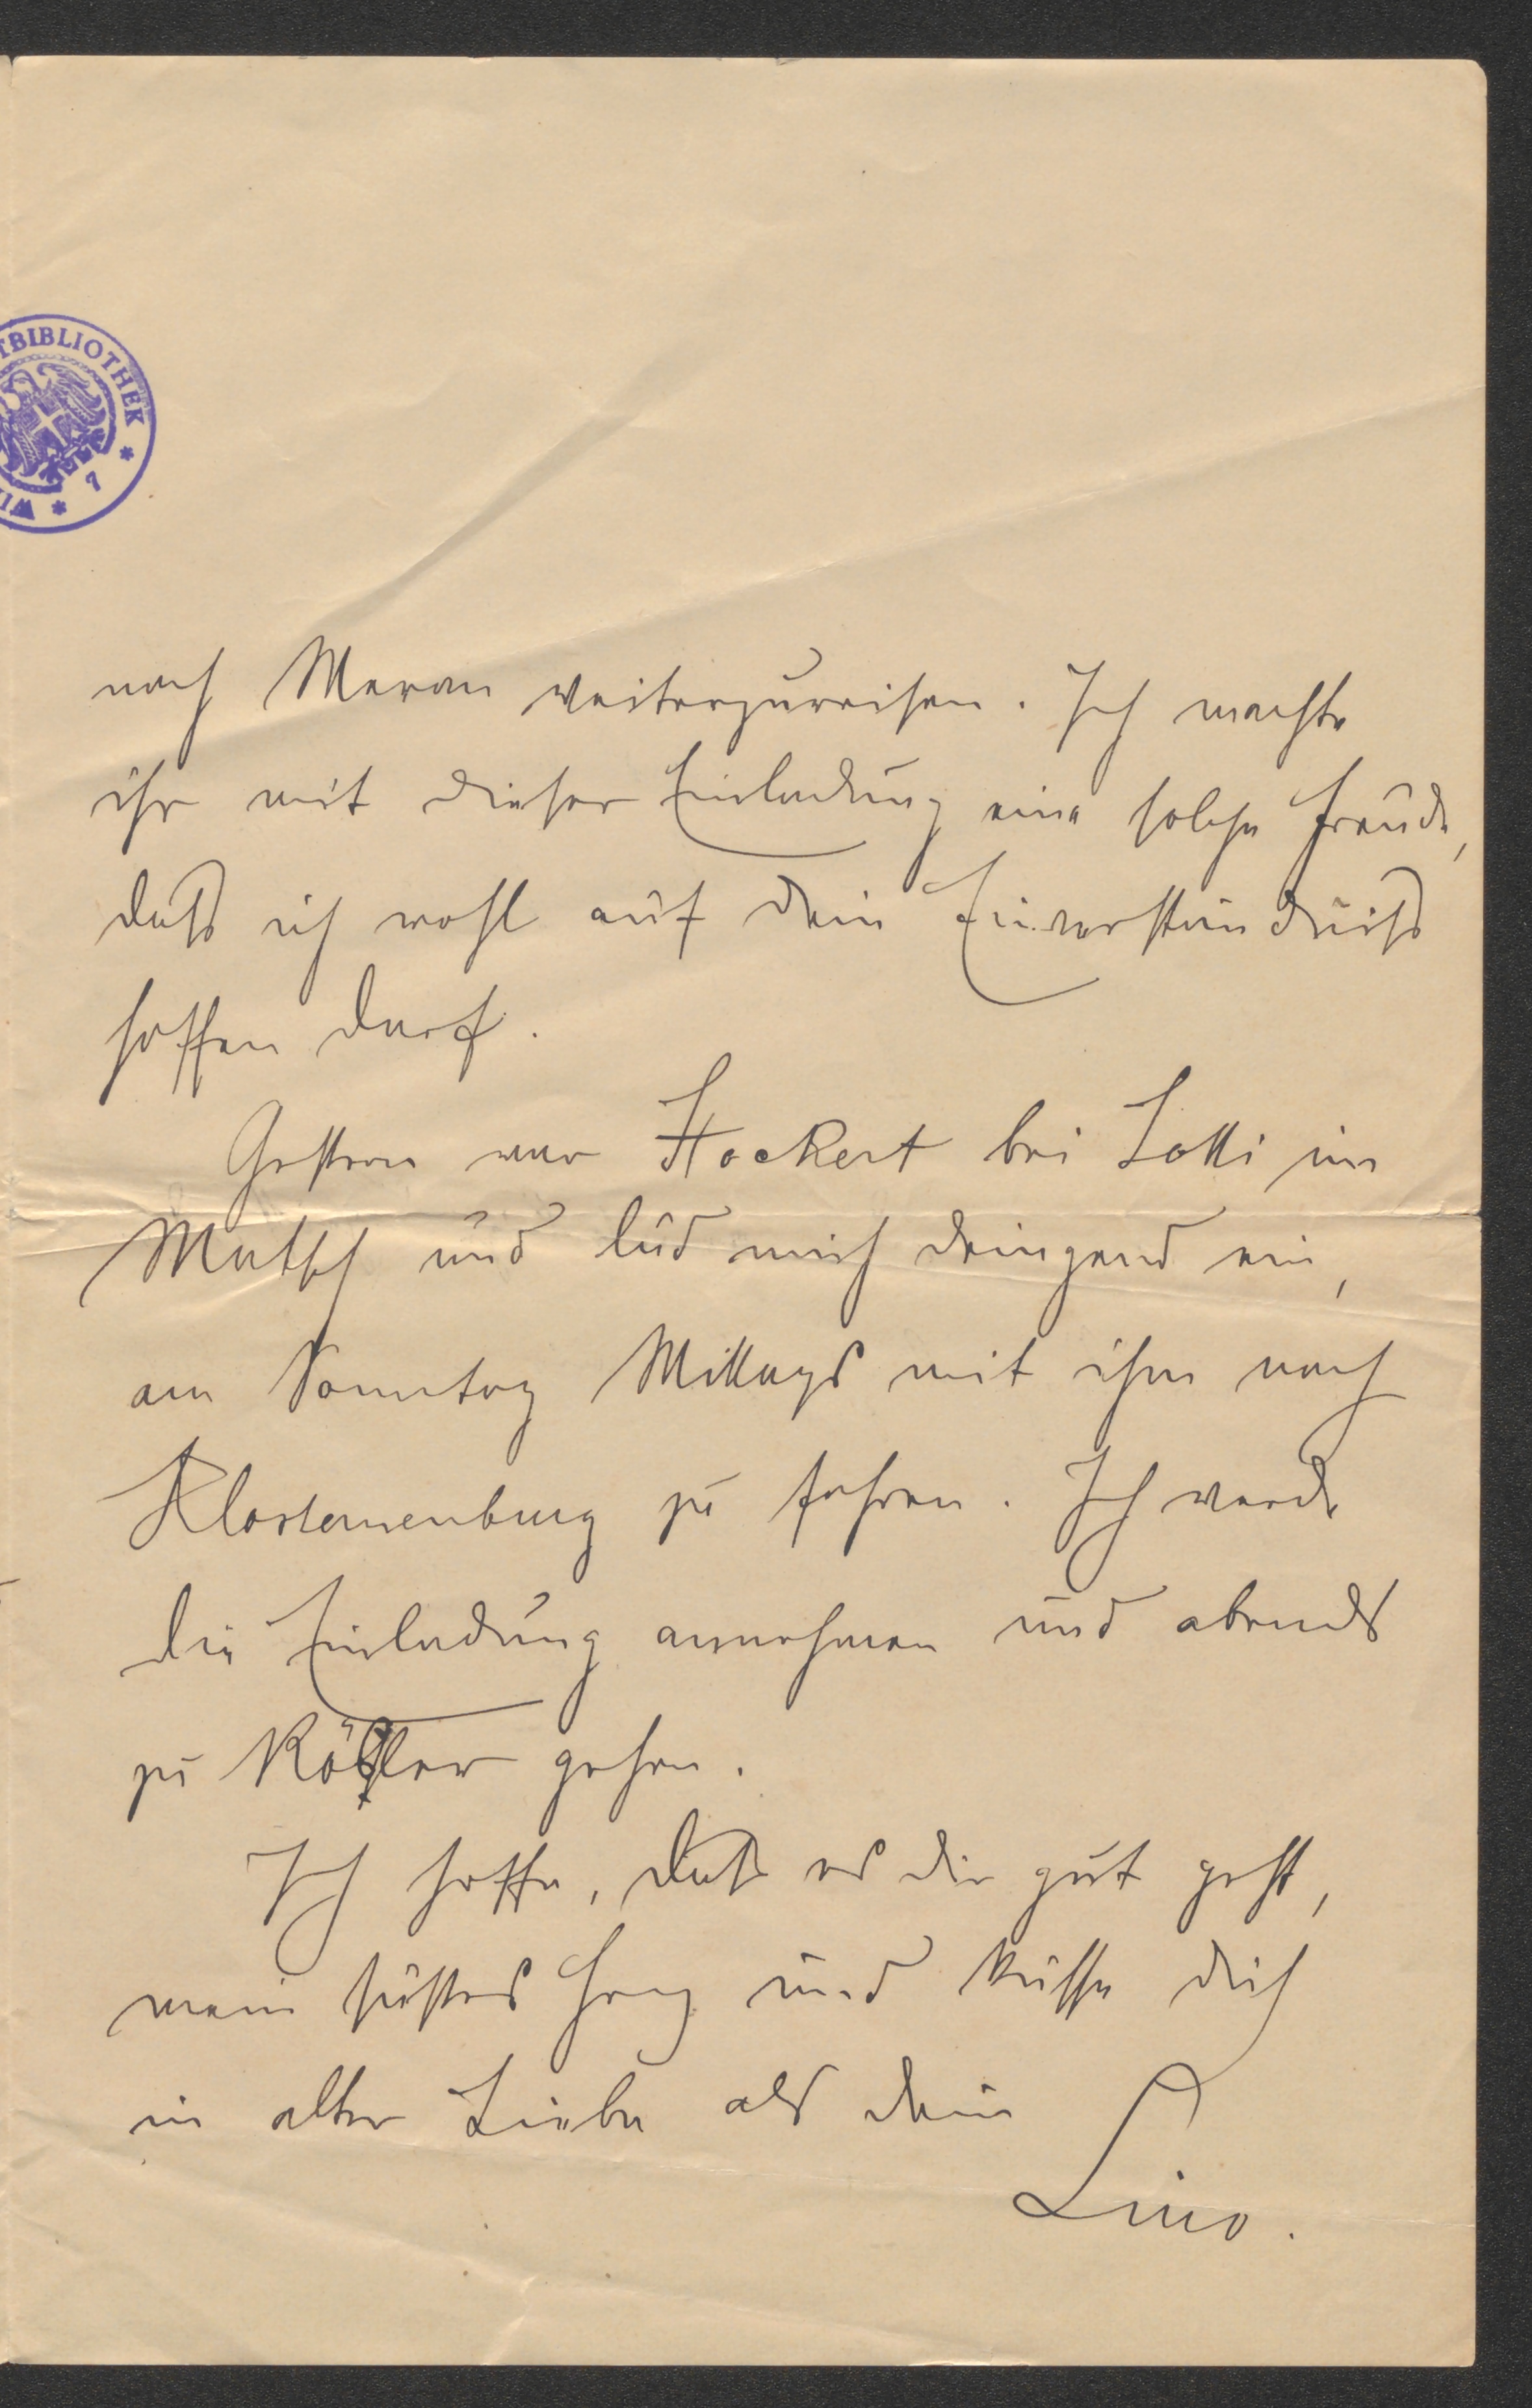 TBIBLIOTHEK * 7 * WI
nach Meran weiterzureisen. Ich machte
ihr mit dieser Einladung eine solche Freude,
daß ich wohl auf dein Einverständniß
hoffen darf.
Gestern war Hockert bei Lotti im
Matsch und lud mich dringend ein,
am Sonntag Mittags mit ihm nach
Klosterneuburg zu fahren. Ich werde
die Einladung annehmen und abends
zu Rößler gehen.
Ich hoffe, daß es dir gut geht,
mein süßes Herz und küsse dich
in alter Liebe als dein
Lino.